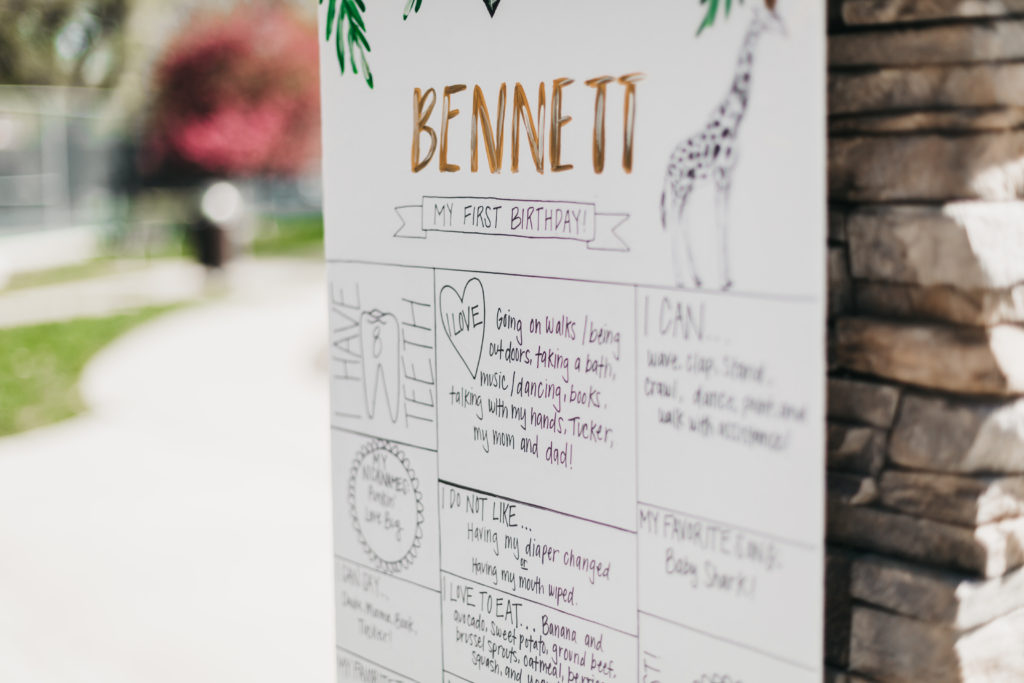 BENNETT
MY FIRST BIRTHDAY!
I HAVE
8
TEETH
I LOVE
Going on walks / being
outdoors, taking a bath,
music / dancing, books,
talking with my hands, Tucker,
my mom and dad!
I CAN...
wave, clap, stand,
crawl, dance, point, and
walk with assistance!
MY
NICKNAMES:
Love Bug
I DO NOT LIKE...
Having my diaper changed
or
Having my mouth wiped.
MY FAVORITE SONG:
Baby Shark!
I CAN SAY:
Tucker!
I LOVE TO EAT... Banana and
avocado, sweet potato, ground beef,
brussel sprouts, oatmeal, berries,
squash, and
MY FAVORITE